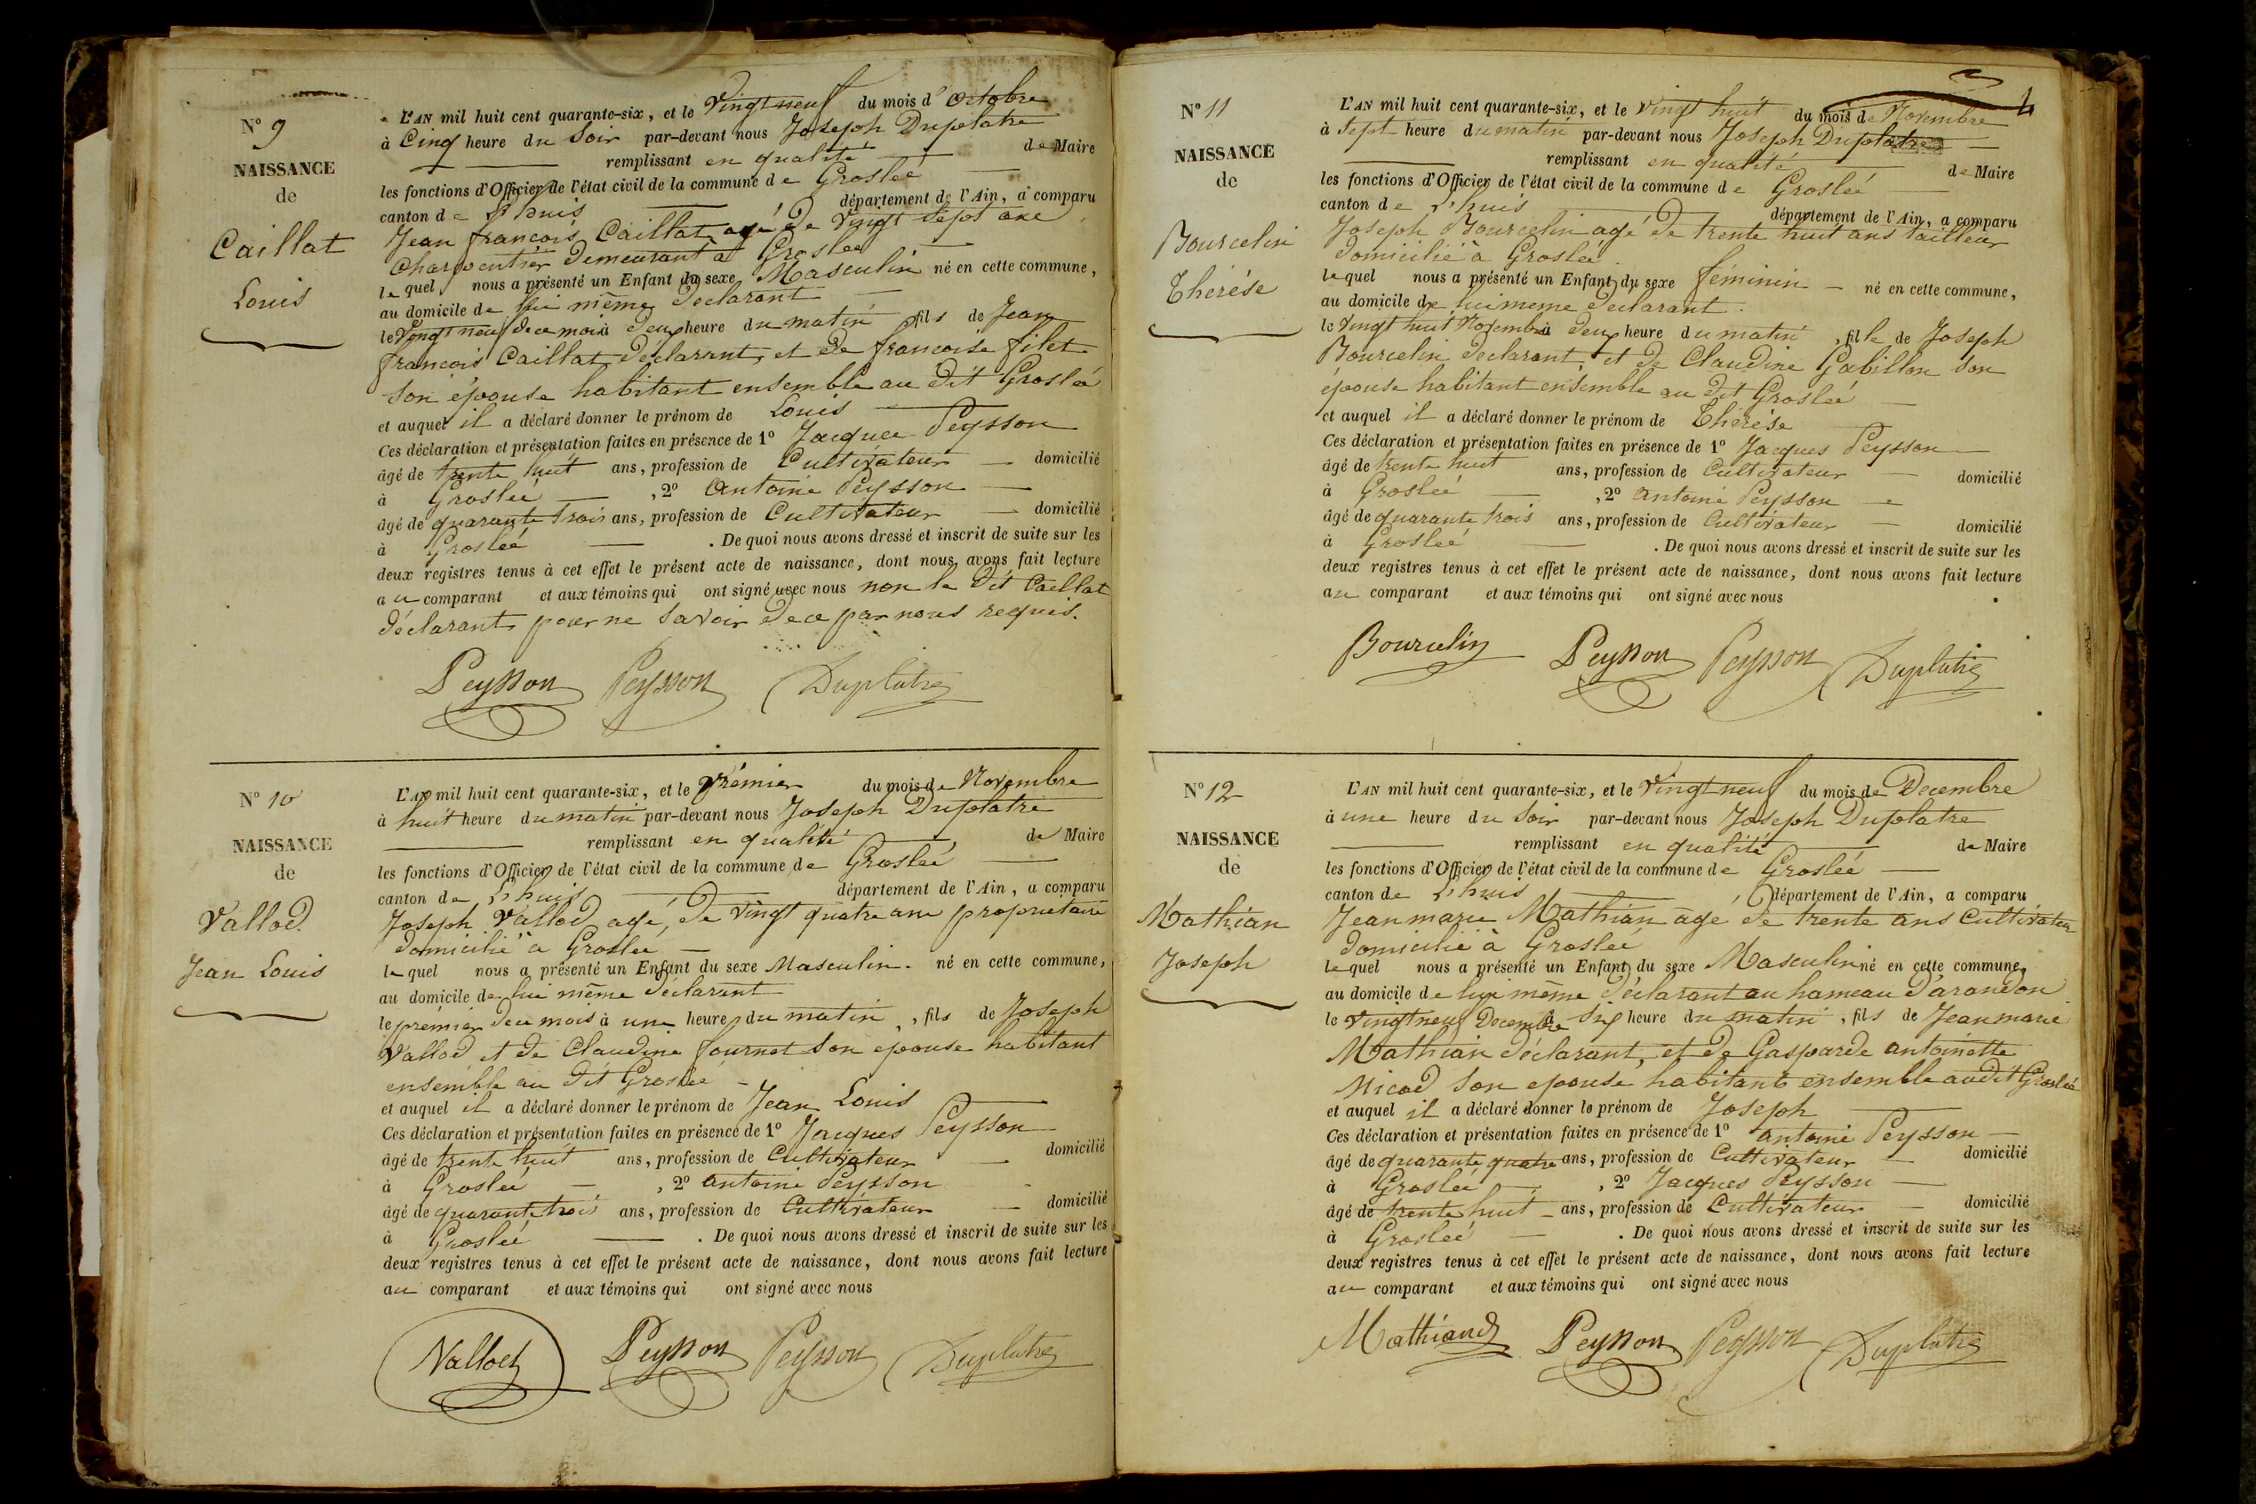 N° 9
NAISSANCE
de
Caillat
Louis
L'AN mil huit cent quarante-six, et le Vingt neuf du mois d'octobre
à Cinq heure du Soir par-devant nous Joseph Duplatre
remplissant en qualité de Maire
les fonctions d'Officier de l'état civil de la commune de Groslée
canton de L'huis département de l'Ain, a comparu
Jean françois Caillat agé de Vingt Sept ans
Charpentier demeurant à Groslee
lequel nous a présenté un Enfant du sexe Masculin né en cette commune,
au domicile de lui même déclarant
le Vingt neuf de ce mois à deux heure du matin fils de Jean
françois Caillat déclarant, et de françoise filet
son épouse habitant ensemble au dit Groslée
et auquel il a déclaré donner le prénom de Louis
Ces déclaration et présentation faites en présence de 1° Jacques Peysson
âgé de trente huit ans, profession de Cultivateur domicilié
à Groslée , 2° Antoine Peysson
âgé de quarante trois ans, profession de Cultivateur domicilié
à Groslée . De quoi nous avons dressé et inscrit de suite sur les
deux registres tenus à cet effet le présent acte de naissance, dont nous avons fait lecture
au comparant et aux témoins qui ont signé avec nous non le dit Caillat
déclarant pour ne savoir de ce par nous requis.
Peysson Peysson Duplatre
N° 10
NAISSANCE
de
Vallod
Jean Louis
L'AN mil huit cent quarante-six, et le Prémier du mois de Novembre
à huit heure du matin par-devant nous Joseph Duplatre
remplissant en qualité de Maire
les fonctions d'Officier de l'état civil de la commune de Groslée
canton de L'huis département de l'Ain, a comparu
Joseph Vallod agé, de vingt quatre ans propriétaire
domicilié à Groslee
lequel nous a présenté un Enfant du sexe Masculin. né en cette commune,
au domicile de lui même déclarant
le prémier de ce mois à une heure du matin , fils de Joseph
Vallod et de Claudine fournet son epouse habitant
ensemble au dit Groslée
et auquel il a déclaré donner le prénom de Jean Louis
Ces déclaration et présentation faites en présence de 1° Jacques Peysson
âgé de trente huit ans, profession de Cultivateur domicilié
à Groslée , 2° antoine Peysson
âgé de quarante trois ans, profession de Cultivateur domicilié
à Groslée . De quoi nous avons dressé et inscrit de suite sur les
deux registres tenus à cet effet le présent acte de naissance, dont nous avons fait lecture
au comparant et aux témoins qui ont signé avec nous
Vallod Peysson Peysson Duplatre
4
N° 11
NAISSANCE
de
Bourcelin
Thérése
L'AN mil huit cent quarante-six, et le Vingt huit du mois de Novembre
à Sept heure du matin par-devant nous Joseph Duplatre
remplissant en qualité de Maire
les fonctions d'Officier de l'état civil de la commune de Groslée
canton de L'huis département de l'Ain, a comparu
Joseph Bourcelin agé de trente huit ans tailleur
domicilié à Groslée
lequel nous a présenté un Enfant du sexe féminin né en cette commune,
au domicile de lui meme declarant
le Vingt huit Novembre à deux heure du matin , fille de Joseph
Bourcelin declarant, et de Claudine Gabillon son
épouse habitant ensemble au dit Groslée
et auquel il a déclaré donner le prénom de Thérése
Ces déclaration et présentation faites en présence de 1° Jacques Peysson
âgé de trente huit ans, profession de Cultivateur domicilié
à Groslée , 2° Antoine Peysson
âgé de quarante trois ans, profession de Cultivateur domicilié
à Groslée . De quoi nous avons dressé et inscrit de suite sur les
deux registres tenus à cet effet le présent acte de naissance, dont nous avons fait lecture
au comparant et aux témoins qui ont signé avec nous
Bourcelin Peysson Peysson Duplatre
N° 12
NAISSANCE
de
Mathian
Joseph
L'AN mil huit cent quarante-six, et le Vingt neuf du mois de Decembre
à une heure du Soir par-devant nous Joseph Duplatre
remplissant en qualité de Maire
les fonctions d'Officier de l'état civil de la commune de Groslée
canton de L'huis département de l'Ain, a comparu
Jean marie Mathian agé de trente ans Cultivateur
domicilié à Groslee
lequel nous a présenté un Enfant du sexe Masculin né en cette commune,
au domicile de lui même déclarant au hameau d'arandon
le Vingt neuf Decembre à Six heure du matin , fils de Jean marie
Mathian déclarant, et de Gasparde antoinette
Micod son epouse habitant ensemble audit Groslée
et auquel il a déclaré donner le prénom de Joseph
Ces déclaration et présentation faites en présence de 1° antoine Peysson
âgé de quarante quatre ans, profession de Cultivateur domicilié
à Groslée , 2° Jacques Peysson
âgé de trente huit ans, profession de Cultivateur domicilié
à Groslée . De quoi nous avons dressé et inscrit de suite sur les
deux registres tenus à cet effet le présent acte de naissance, dont nous avons fait lecture
au comparant et aux témoins qui ont signé avec nous
Mathiand Peysson Peysson Duplatre